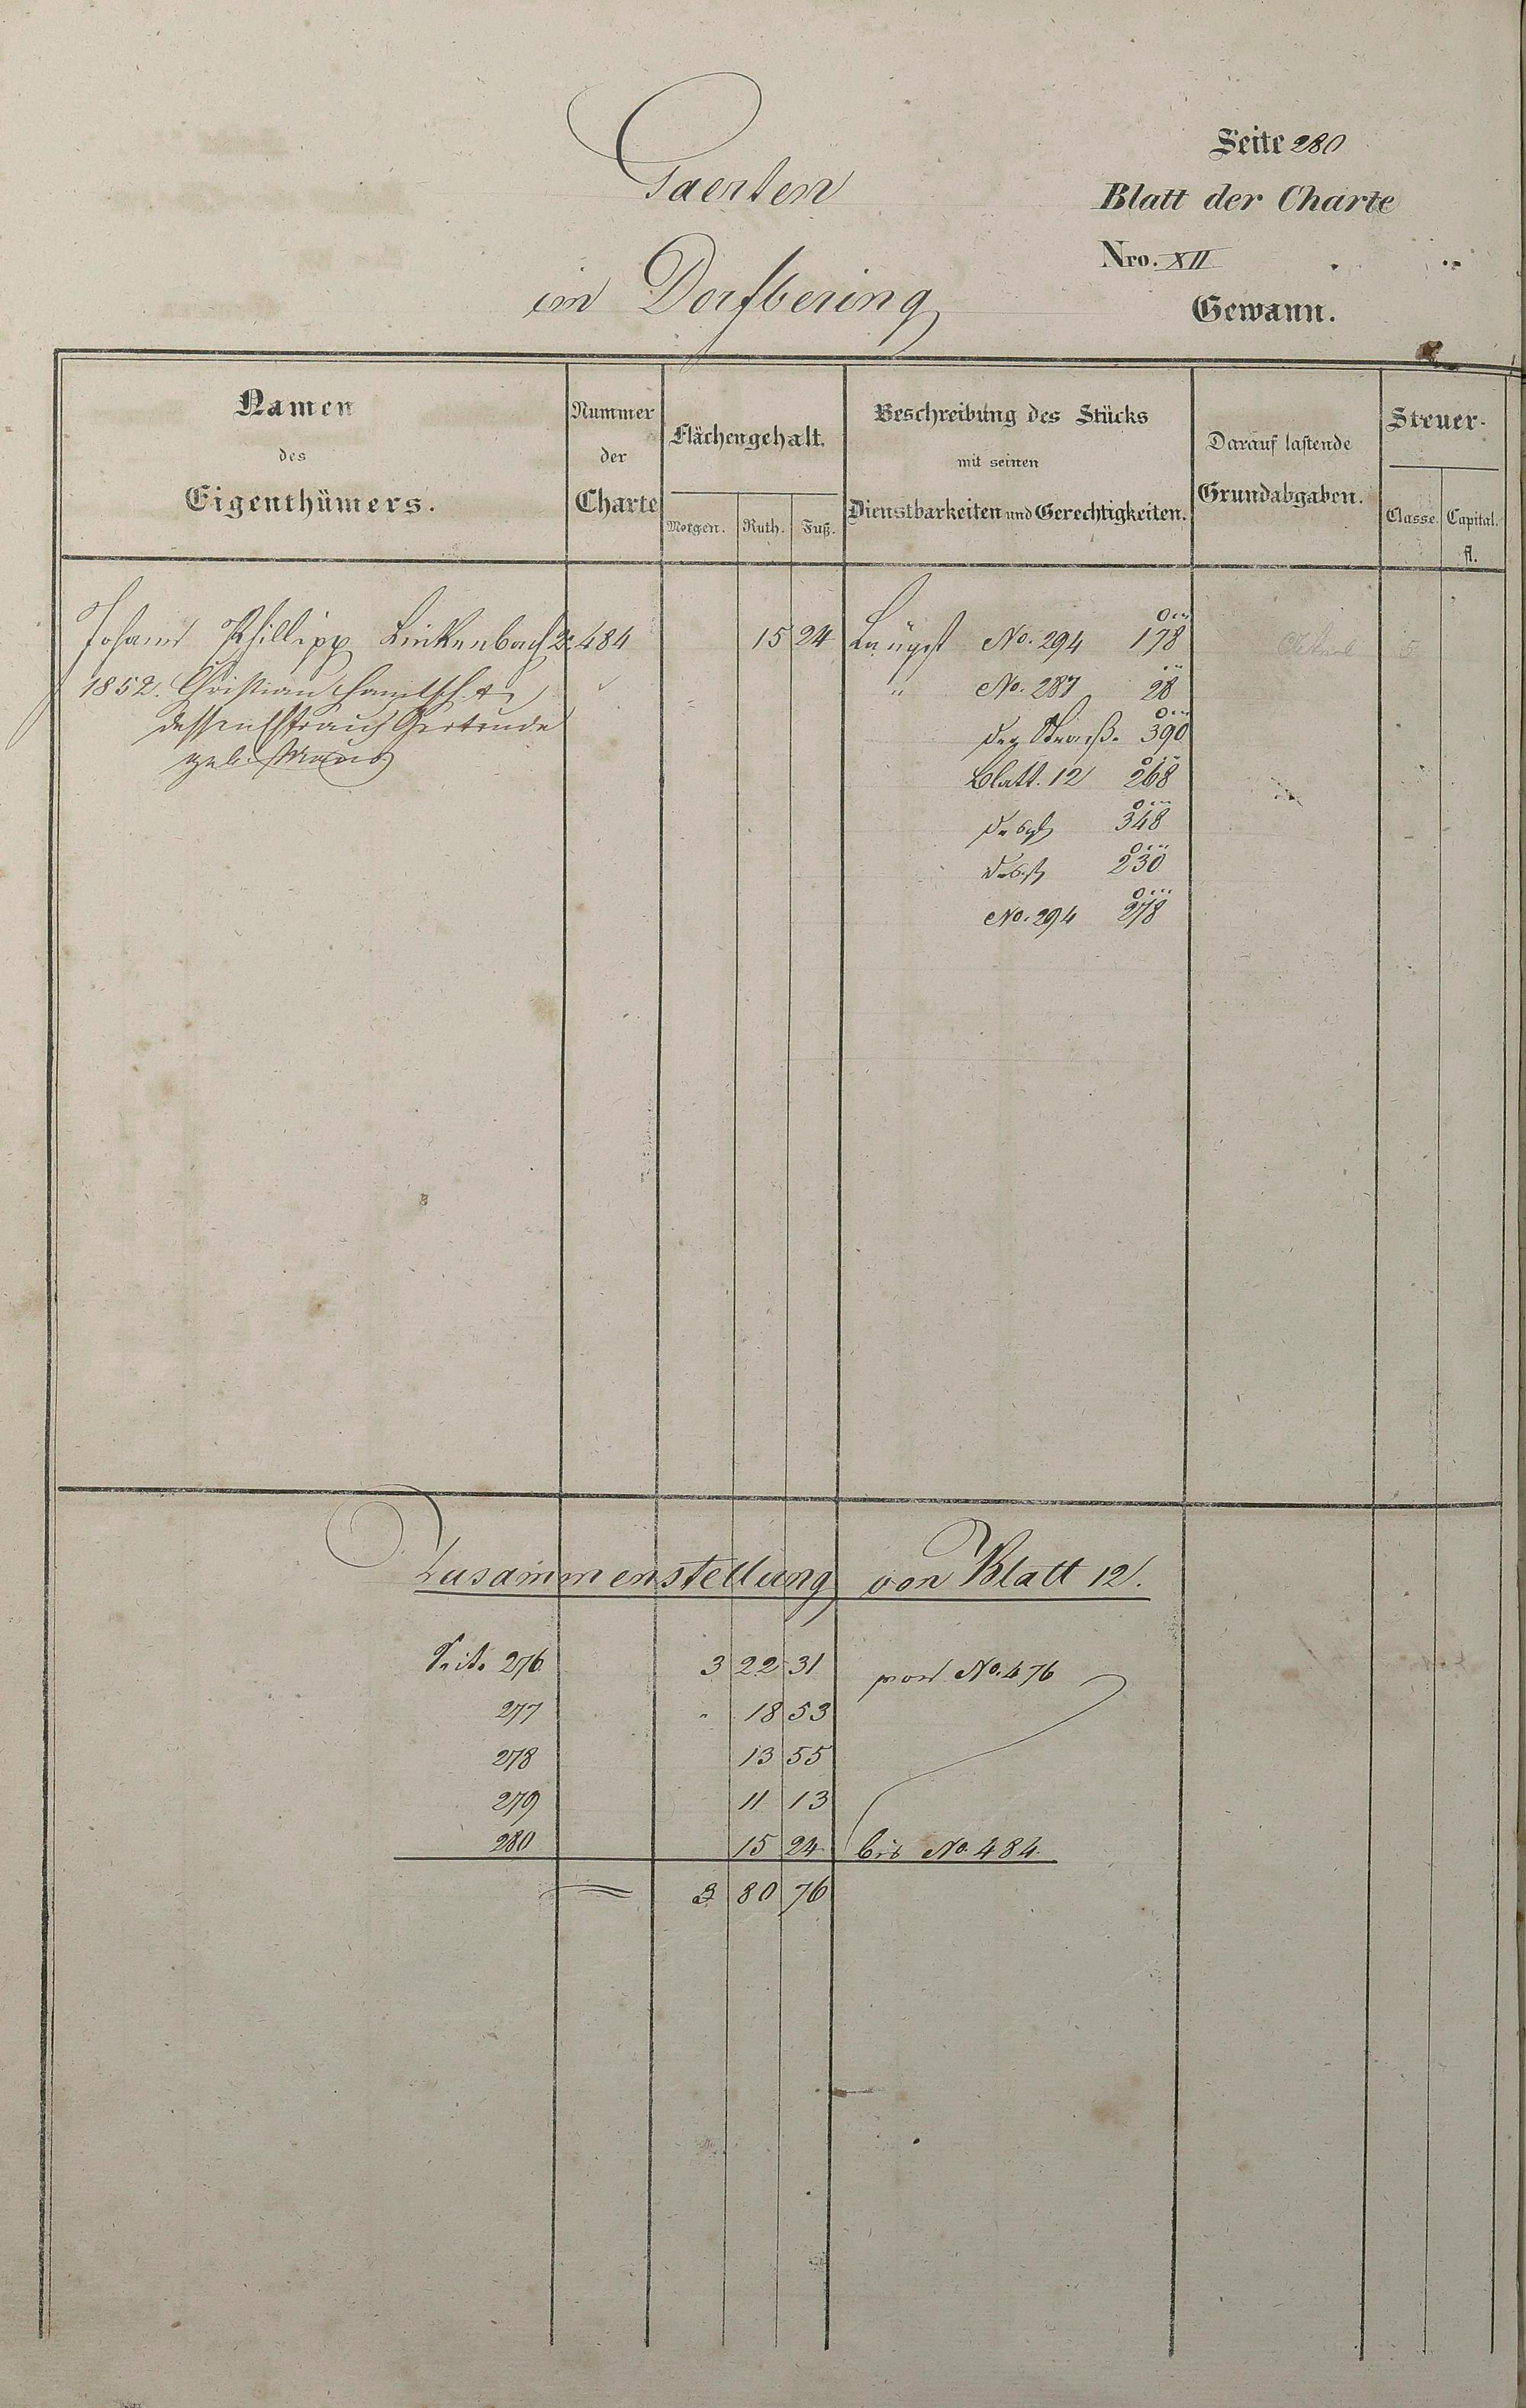 Seite 280
Gaerten
Blatt der Charte
Nro. XII
im Dorfbering
Gewann.
Namen des Eigenthümers.
Nummer der Charte
Flächengehalt.
Morgen. Ruth. Fuß.
Beschreibung des Stücks mit seinen Dienstbarkeiten und Gerechtigkeiten.
Darauf lastende Grundabgaben.
Steuer-
Classe. Capital.
fl.
Johann Phillipp Linkenbach 2r 484 15 24 Laengst No. 294 178
1852. Christian " No. 287 28
dessen Ehefrau Gertrude der Straße 390
geb. Maus Blatt. 12 268
desgl 348
desgl 230
No. 294 278
Zusammenstellung von Blatt 12.
Seite 276 3 22 31 von No. 476
277 " 18 53
278 13 55
279 11 13
280 15 24 bis No. 484.
3 80 76